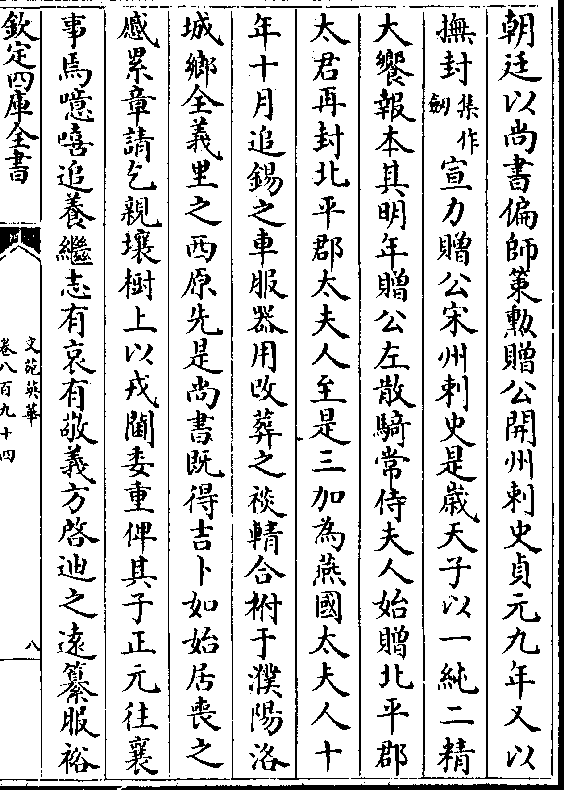 朝廷以尚書偏師策勲贈公開州刺史貞元九年又以
撫封集作劒宣力贈公宋州刺史是歳天子以一純二精
大饗報本其明年贈公左散騎常侍夫人始贈北平郡
太君再封北平郡太夫人至是三加為燕國太夫人十
年十月追錫之車服器用改葬之襚輤合祔于濮陽洛
城鄉全義里之西原先是尚書既得吉卜如始居喪之
慼累章請乞親壤樹上以戎閫委重俾其子正元往襄
事焉噫嘻追養繼志有哀有敬義方啓迪之逺纂服裕
欽定四庫全書
文苑英華
卷八百九十四
八